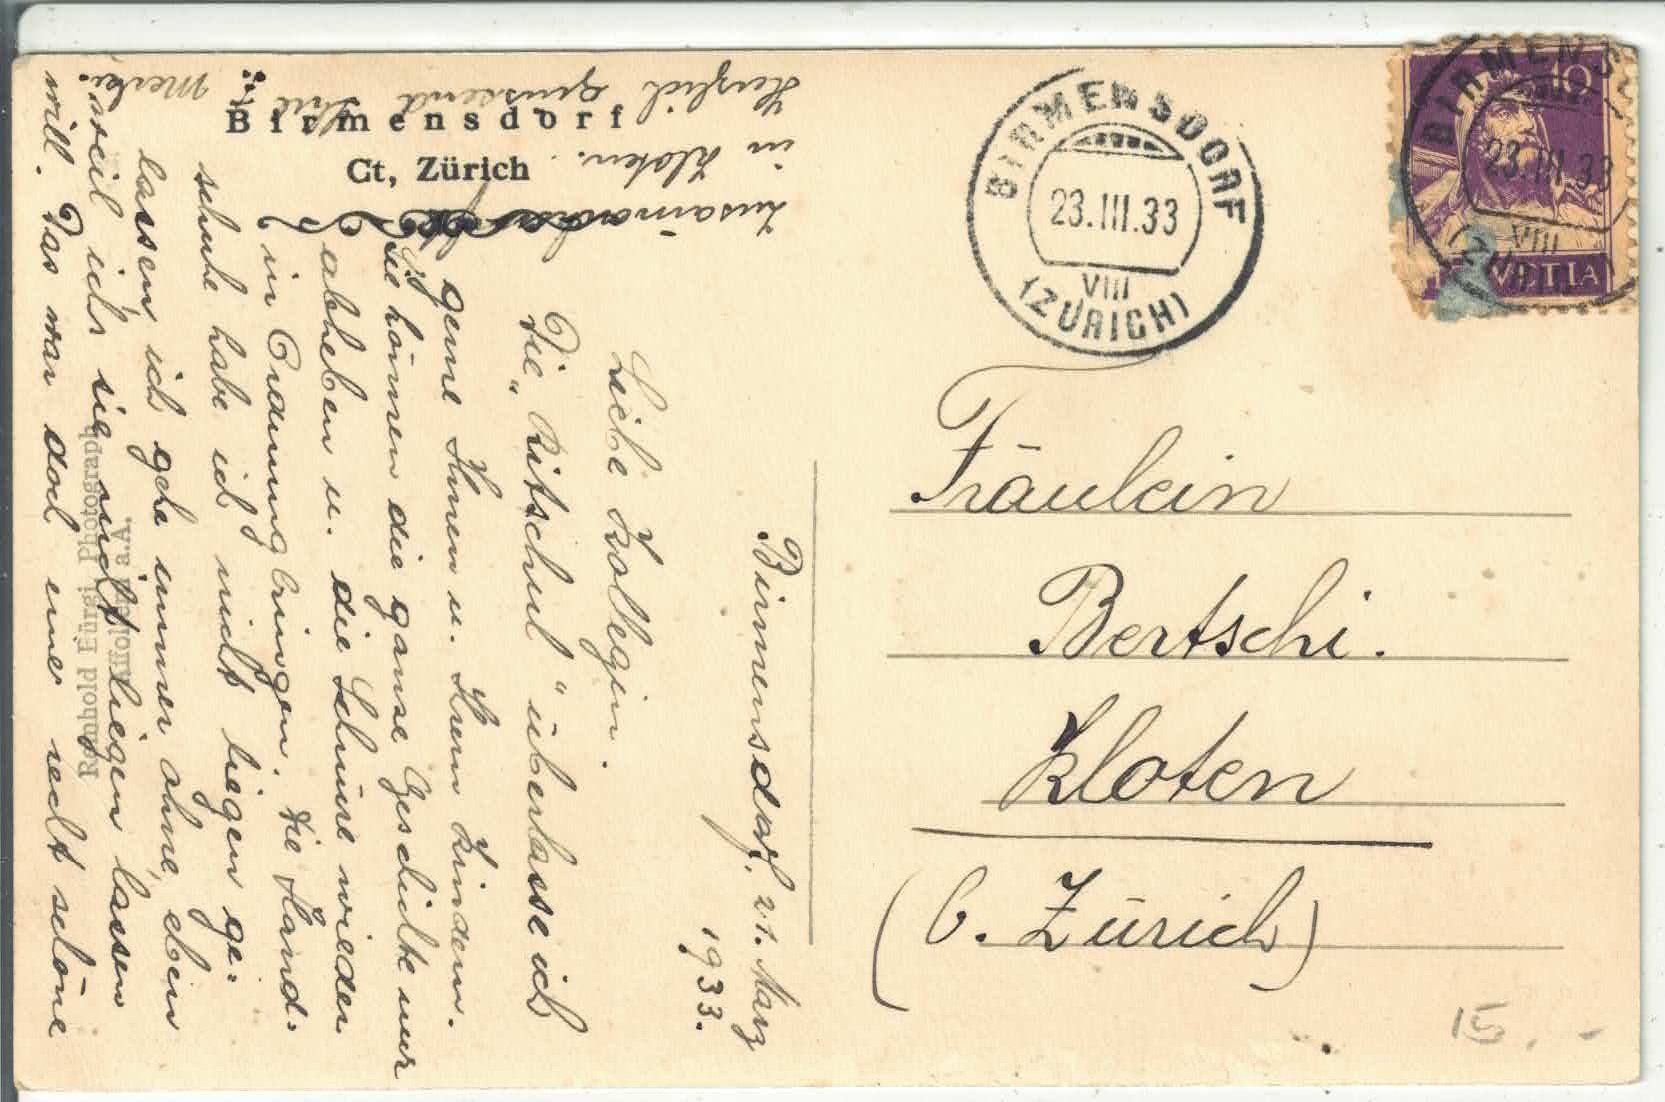 Birmensdorf
Ct, Zürich
BIRMENSDORF
23.III.33
VIII
(ZÜRICH)
10
BIRMENS
23.III.33
VIII
(ZÜRI
VETIA
Fräulein
Bertschi.
Kloten
(b. Zürich)
15.-
Birmensdorf. 21. März
1933.
Liebe Kollegin.
Die „Ritschul“ überlasse ich
gerne Ihnen u. Ihren Kindern.
Sie können die ganze Geschichte nur
abheben u. die Schnüre wieder
in Ordnung bringen. Die Hand-
schuhe habe ich nicht liegen ge-
lassen, ich gehe immer ohne, eben
weil ich sie nicht liegen lassen
will. Das war doch eine recht schöne
Zusammen
in Kloten.
Herzlich grüssend
Reinhold Bürgi, Photograph
Affoltern a.A.